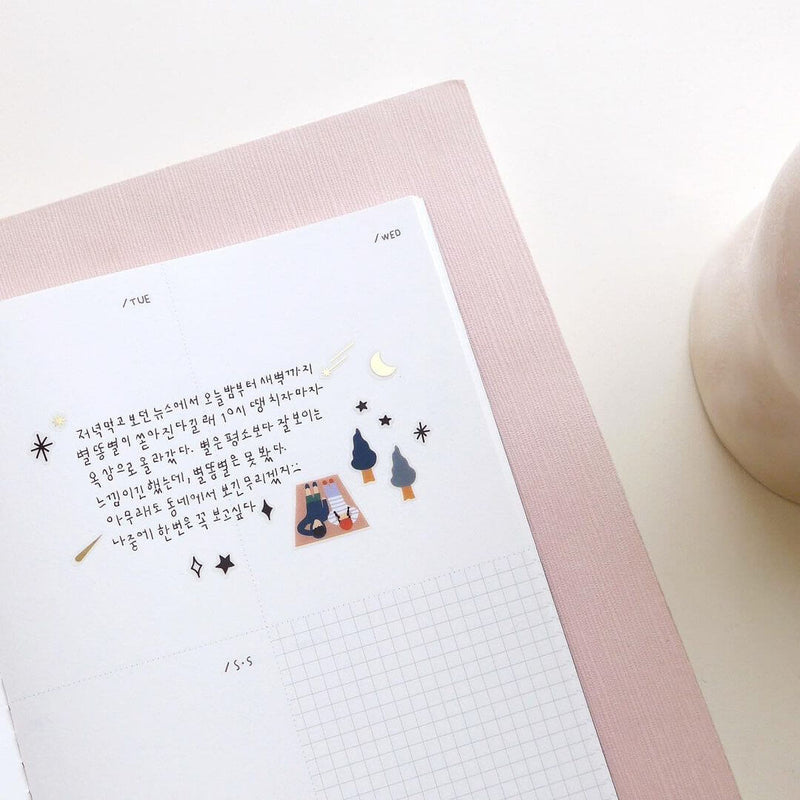 /TUE
/WED
저녁먹고 보던 뉴스에서 오늘밤부터 새벽까지
별똥별이 쏟아진다길래 10시 땡 치자마자
옥상으로 올라갔다. 별은 평소보다 잘 보이는
느낌이긴 했는데, 별똥별은 못 봤다.
아무래도 동네에서 보긴 무리겠지:(
나중에 한번은 꼭 보고싶다
/S·S